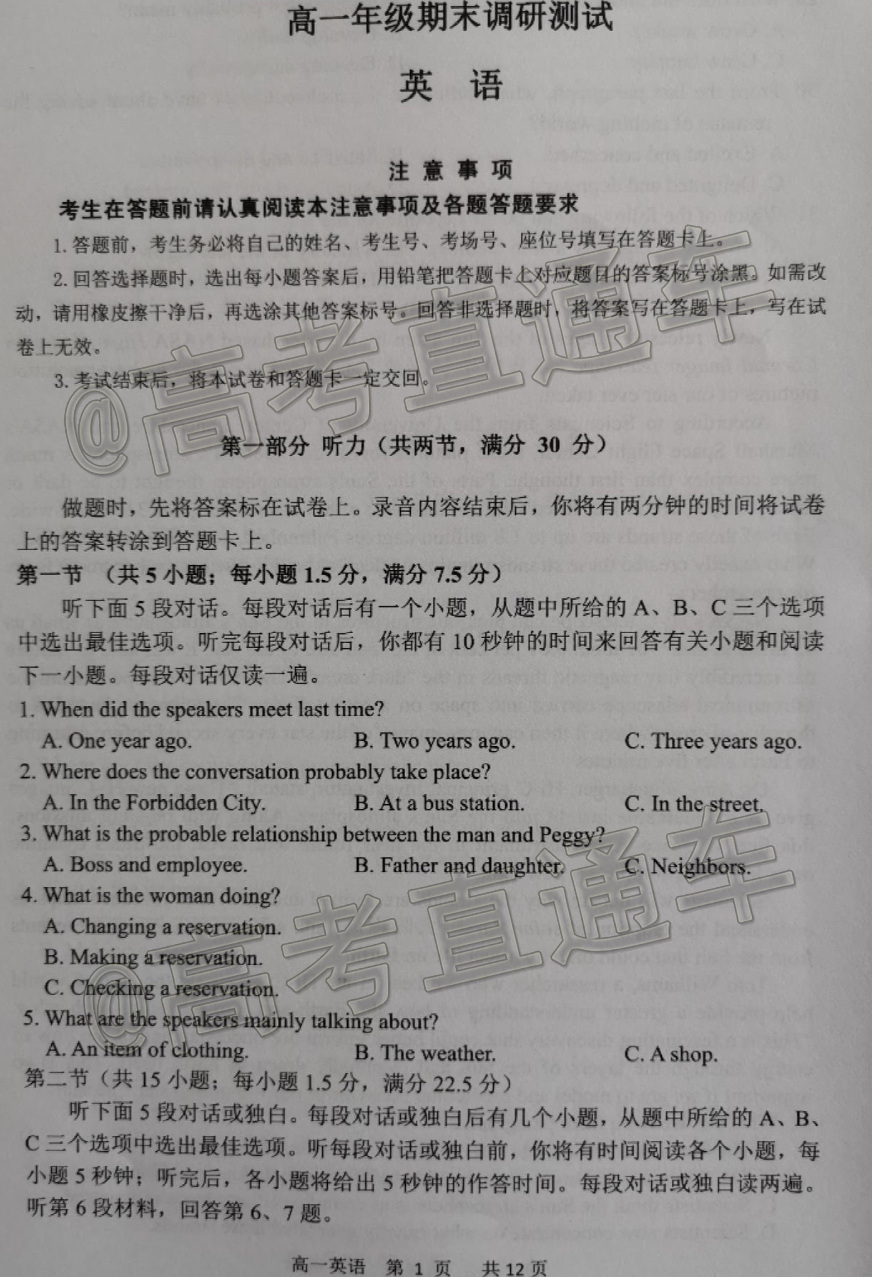 高一年级期末调研测试
英 语
注 意 事 项
考生在答题前请认真阅读本注意事项及各题答题要求
1. 答题前，考生务必将自己的姓名、考生号、考场号、座位号填写在答题卡上。
2. 回答选择题时，选出每小题答案后，用铅笔把答题卡上对应题目的答案标号涂黑。如需改
动，请用橡皮擦干净后，再选涂其他答案标号。回答非选择题时，将答案写在答题卡上，写在试
卷上无效。
3. 考试结束后，将本试卷和答题卡一定交回。
@高考直通车
第一部分 听力（共两节，满分 30 分）
做题时，先将答案标在试卷上。录音内容结束后，你将有两分钟的时间将试卷
上的答案转涂到答题卡上。
第一节 （共 5 小题；每小题 1.5 分，满分 7.5 分）
听下面 5 段对话。每段对话后有一个小题，从题中所给的 A、B、C 三个选项
中选出最佳选项。听完每段对话后，你都有 10 秒钟的时间来回答有关小题和阅读
下一小题。每段对话仅读一遍。
1. When did the speakers meet last time?
A. One year ago. B. Two years ago. C. Three years ago.
2. Where does the conversation probably take place?
A. In the Forbidden City. B. At a bus station. C. In the street.
3. What is the probable relationship between the man and Peggy?
A. Boss and employee. B. Father and daughter. C. Neighbors.
4. What is the woman doing?
A. Changing a reservation.
B. Making a reservation.
C. Checking a reservation.
@高考直通车
5. What are the speakers mainly talking about?
A. An item of clothing. B. The weather. C. A shop.
第二节（共 15 小题；每小题 1.5 分，满分 22.5 分）
听下面 5 段对话或独白。每段对话或独白后有几个小题，从题中所给的 A、B、
C 三个选项中选出最佳选项。听每段对话或独白前，你将有时间阅读各个小题，每
小题 5 秒钟；听完后，各小题将给出 5 秒钟的作答时间。每段对话或独白读两遍。
听第 6 段材料，回答第 6、7 题。
高一英语 第 1 页 共 12 页